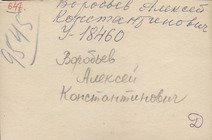 647.
Воробьев Алексей
Константинович
У-18460
9545
Воробьев
Алексей
Константинович
Д